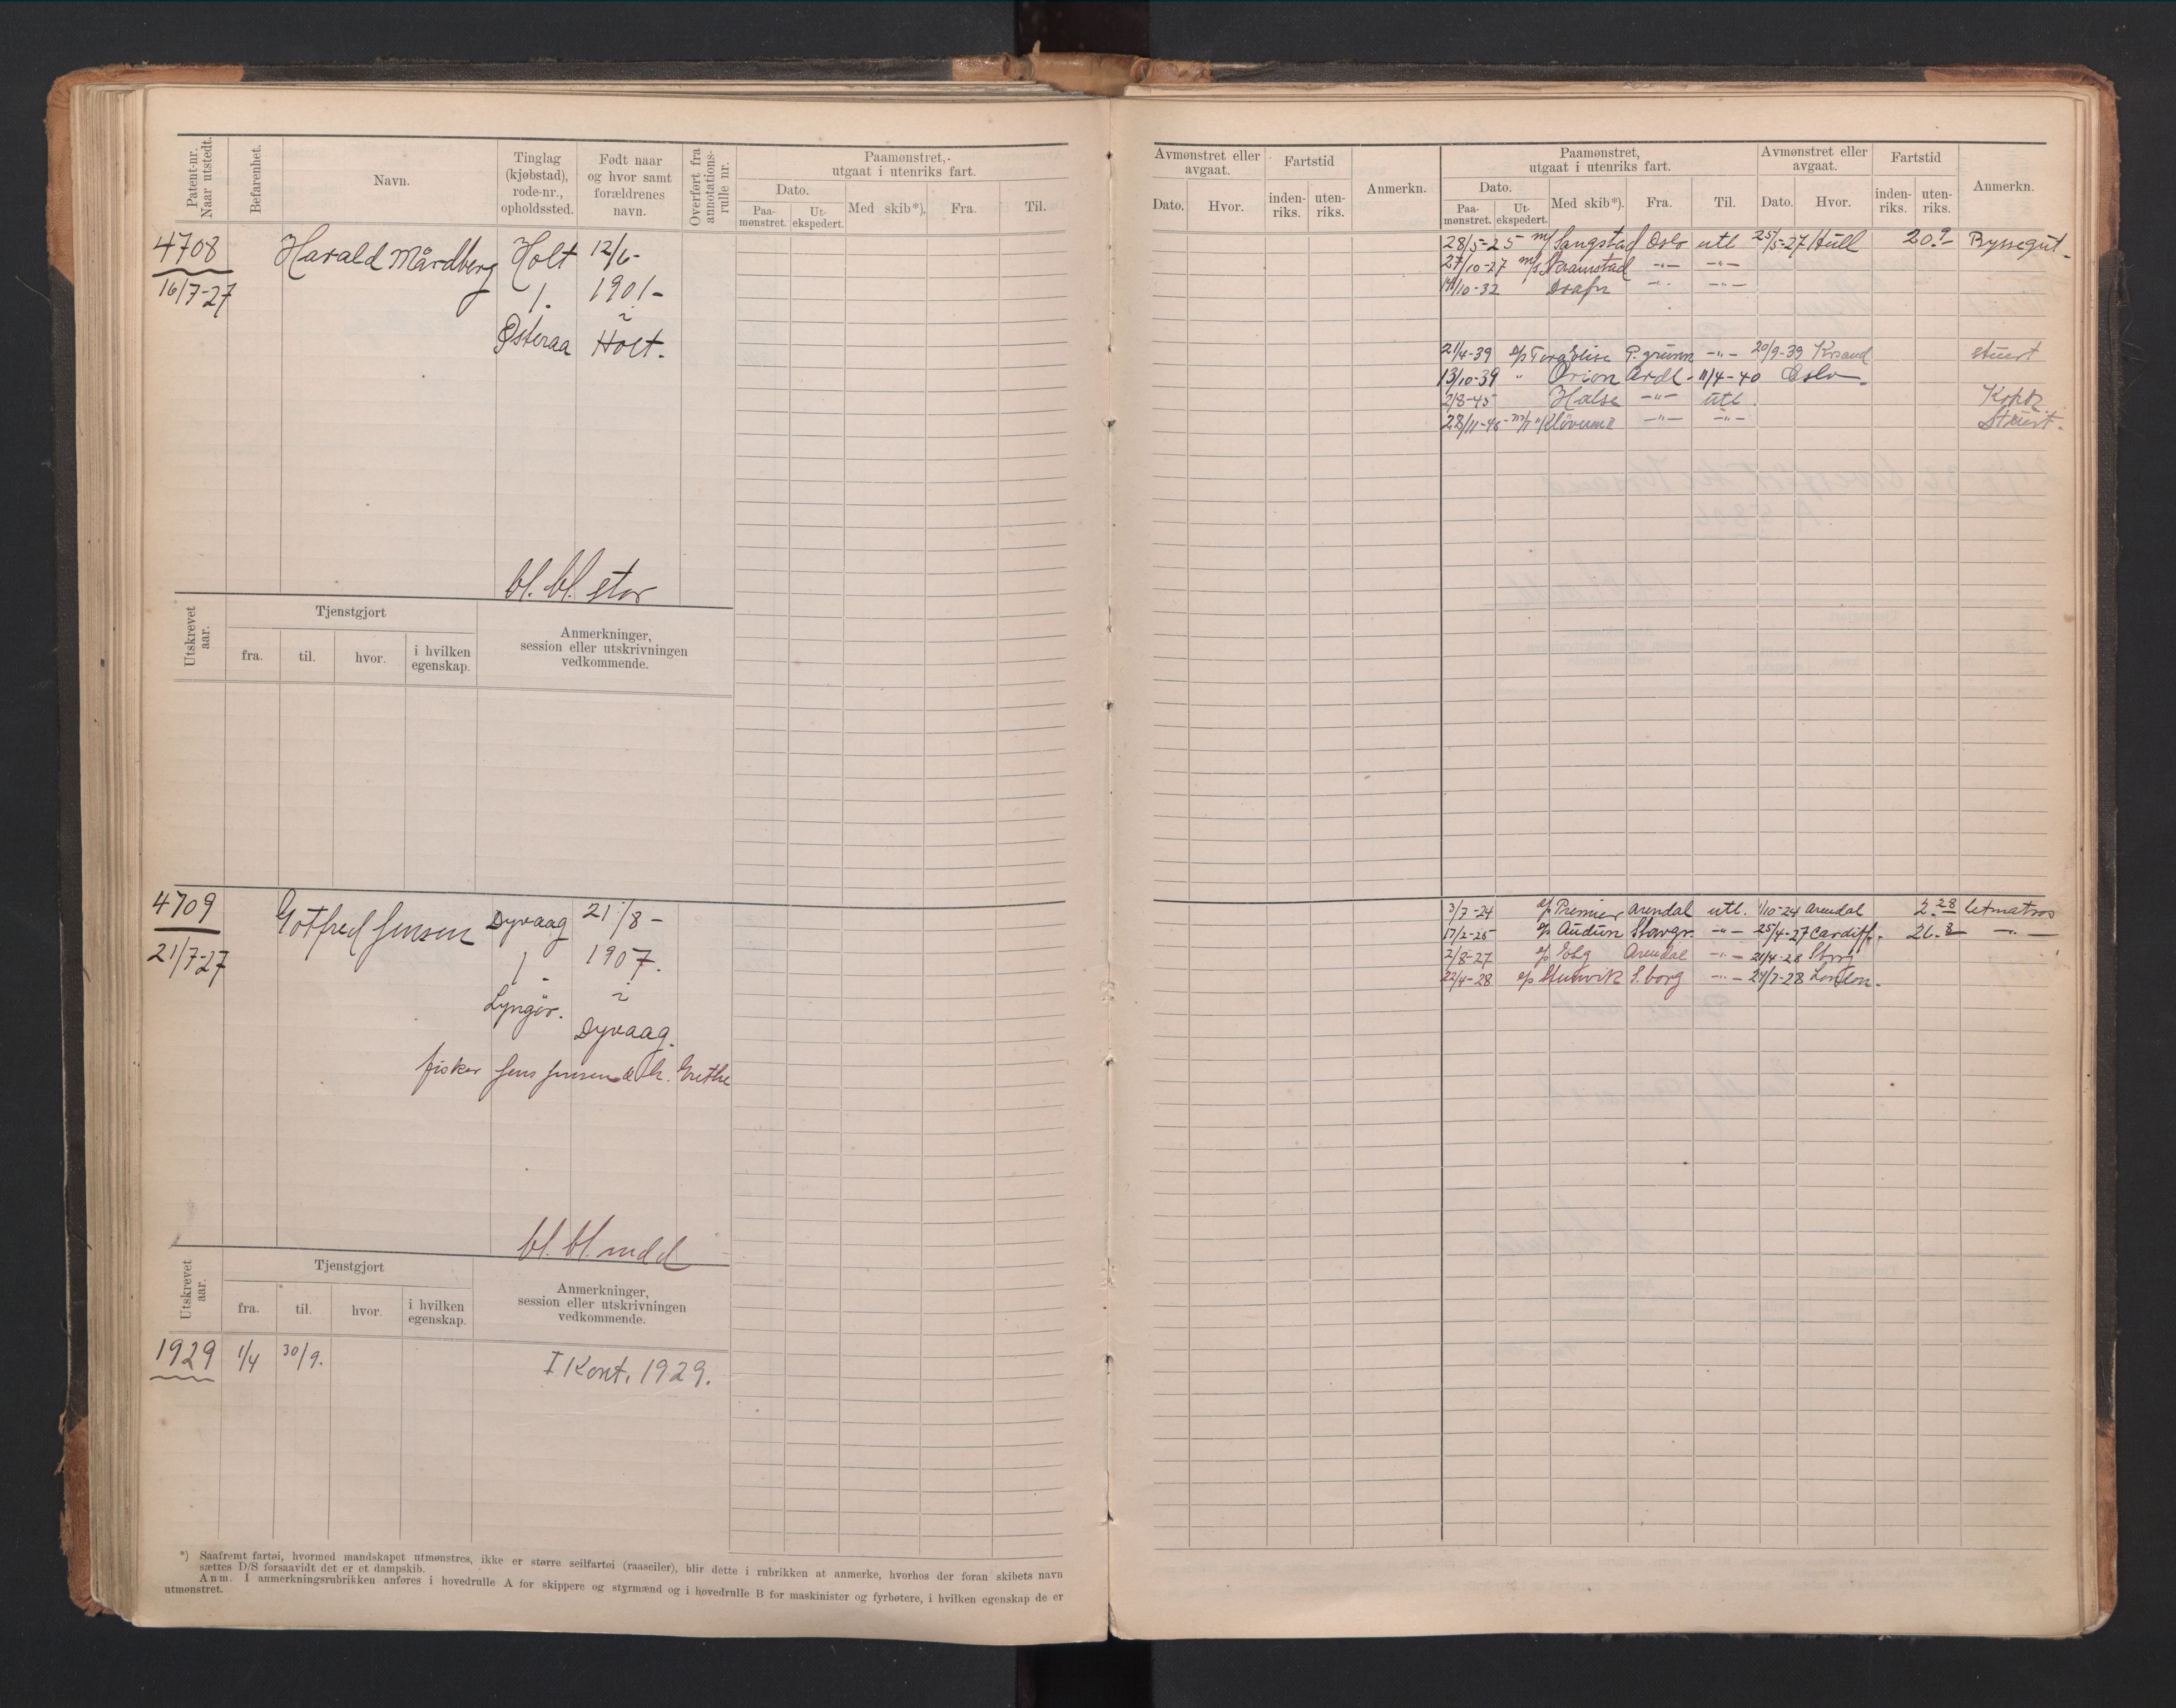 Patent-nr. Naar utstedt.
Befarenhet.
Navn.
Tinglag (kjøbstad), rode-nr., opholdssted.
Født naar og hvor samt forældrenes navn.
Overført fra annotations-rulle nr.
Paamønstret, utgaat i utenriks fart.
Dato.
Paa-mønstret.
Ut-ekspedert.
Med skib*).
Fra.
Til.
4708
16/7-27
Harald Mårdberg
Holt
1.
Østeraa
12/6-
1901-
i
Holt.
bl. bl. stor
Utskrevet aar.
Tjenstgjort
fra.
til.
hvor.
i hvilken egenskap.
Anmerkninger, session eller utskrivningen vedkommende.
4709
21/7-27
Gotfred Jensen
Dyvaag
1.
Lyngør.
21/8-
1907.
i
Dyvaag.
fisker Jens Jensen & h. Grethe
bl. bl. midd
Utskrevet aar.
Tjenstgjort
fra.
til.
hvor.
i hvilken egenskap.
Anmerkninger, session eller utskrivningen vedkommende.
1929 1/4 30/9. I Kont. 1929.
*) Saafremt fartøi, hvormed mandskapet utmønstres, ikke er større seilfartøi (raaseiler), blir dette i rubrikken at anmerke, hvorhos der foran skibets navn
sættes D/S forsaavidt det er et dampskib.
Anm. I anmerkningsrubrikken anføres i hovedrulle A for skippere og styrmænd og i hovedrulle B for maskinister og fyrbøtere, i hvilken egenskap de er
utmønstret.
Avmønstret eller avgaat.
Dato.
Hvor.
Fartstid
inden-riks.
uten-riks.
Anmerkn.
Paamønstret, utgaat i utenriks fart.
Dato.
Paa-mønstret.
Ut-ekspedert.
Med skib*).
Fra.
Til.
Avmønstret eller avgaat.
Dato.
Hvor.
Fartstid
inden-riks.
uten-riks.
Anmerkn.
28/5-25 m/ Sangstad Oslo utl 25/5-27 Hull 20.9 Byssegut
27/10-27 m/s Kramstad -"- -"-
10-32 Drafn -"- -"-
21/4-39 D/s Tora Elise P.grunn -"- 20/9-39 Krsand stuert
13/10-39 " Orion Ardl - 11/4-40 Oslo
2/8-45 Halse -"- utl. Kokk
28/11-46 -"- -"- Stuert.
3/7-24 Premier Arendal utl. 1/10-24 Arendal 2.28 letmatros
17/2-25 Audun Stavgr. -"- 25/4-27 Cardiff. 26.8 -"-
2/8-27 Arendal -"- 21/4-28 Sbrg
22/4-28 S.borg -"- 27/7-28 London.